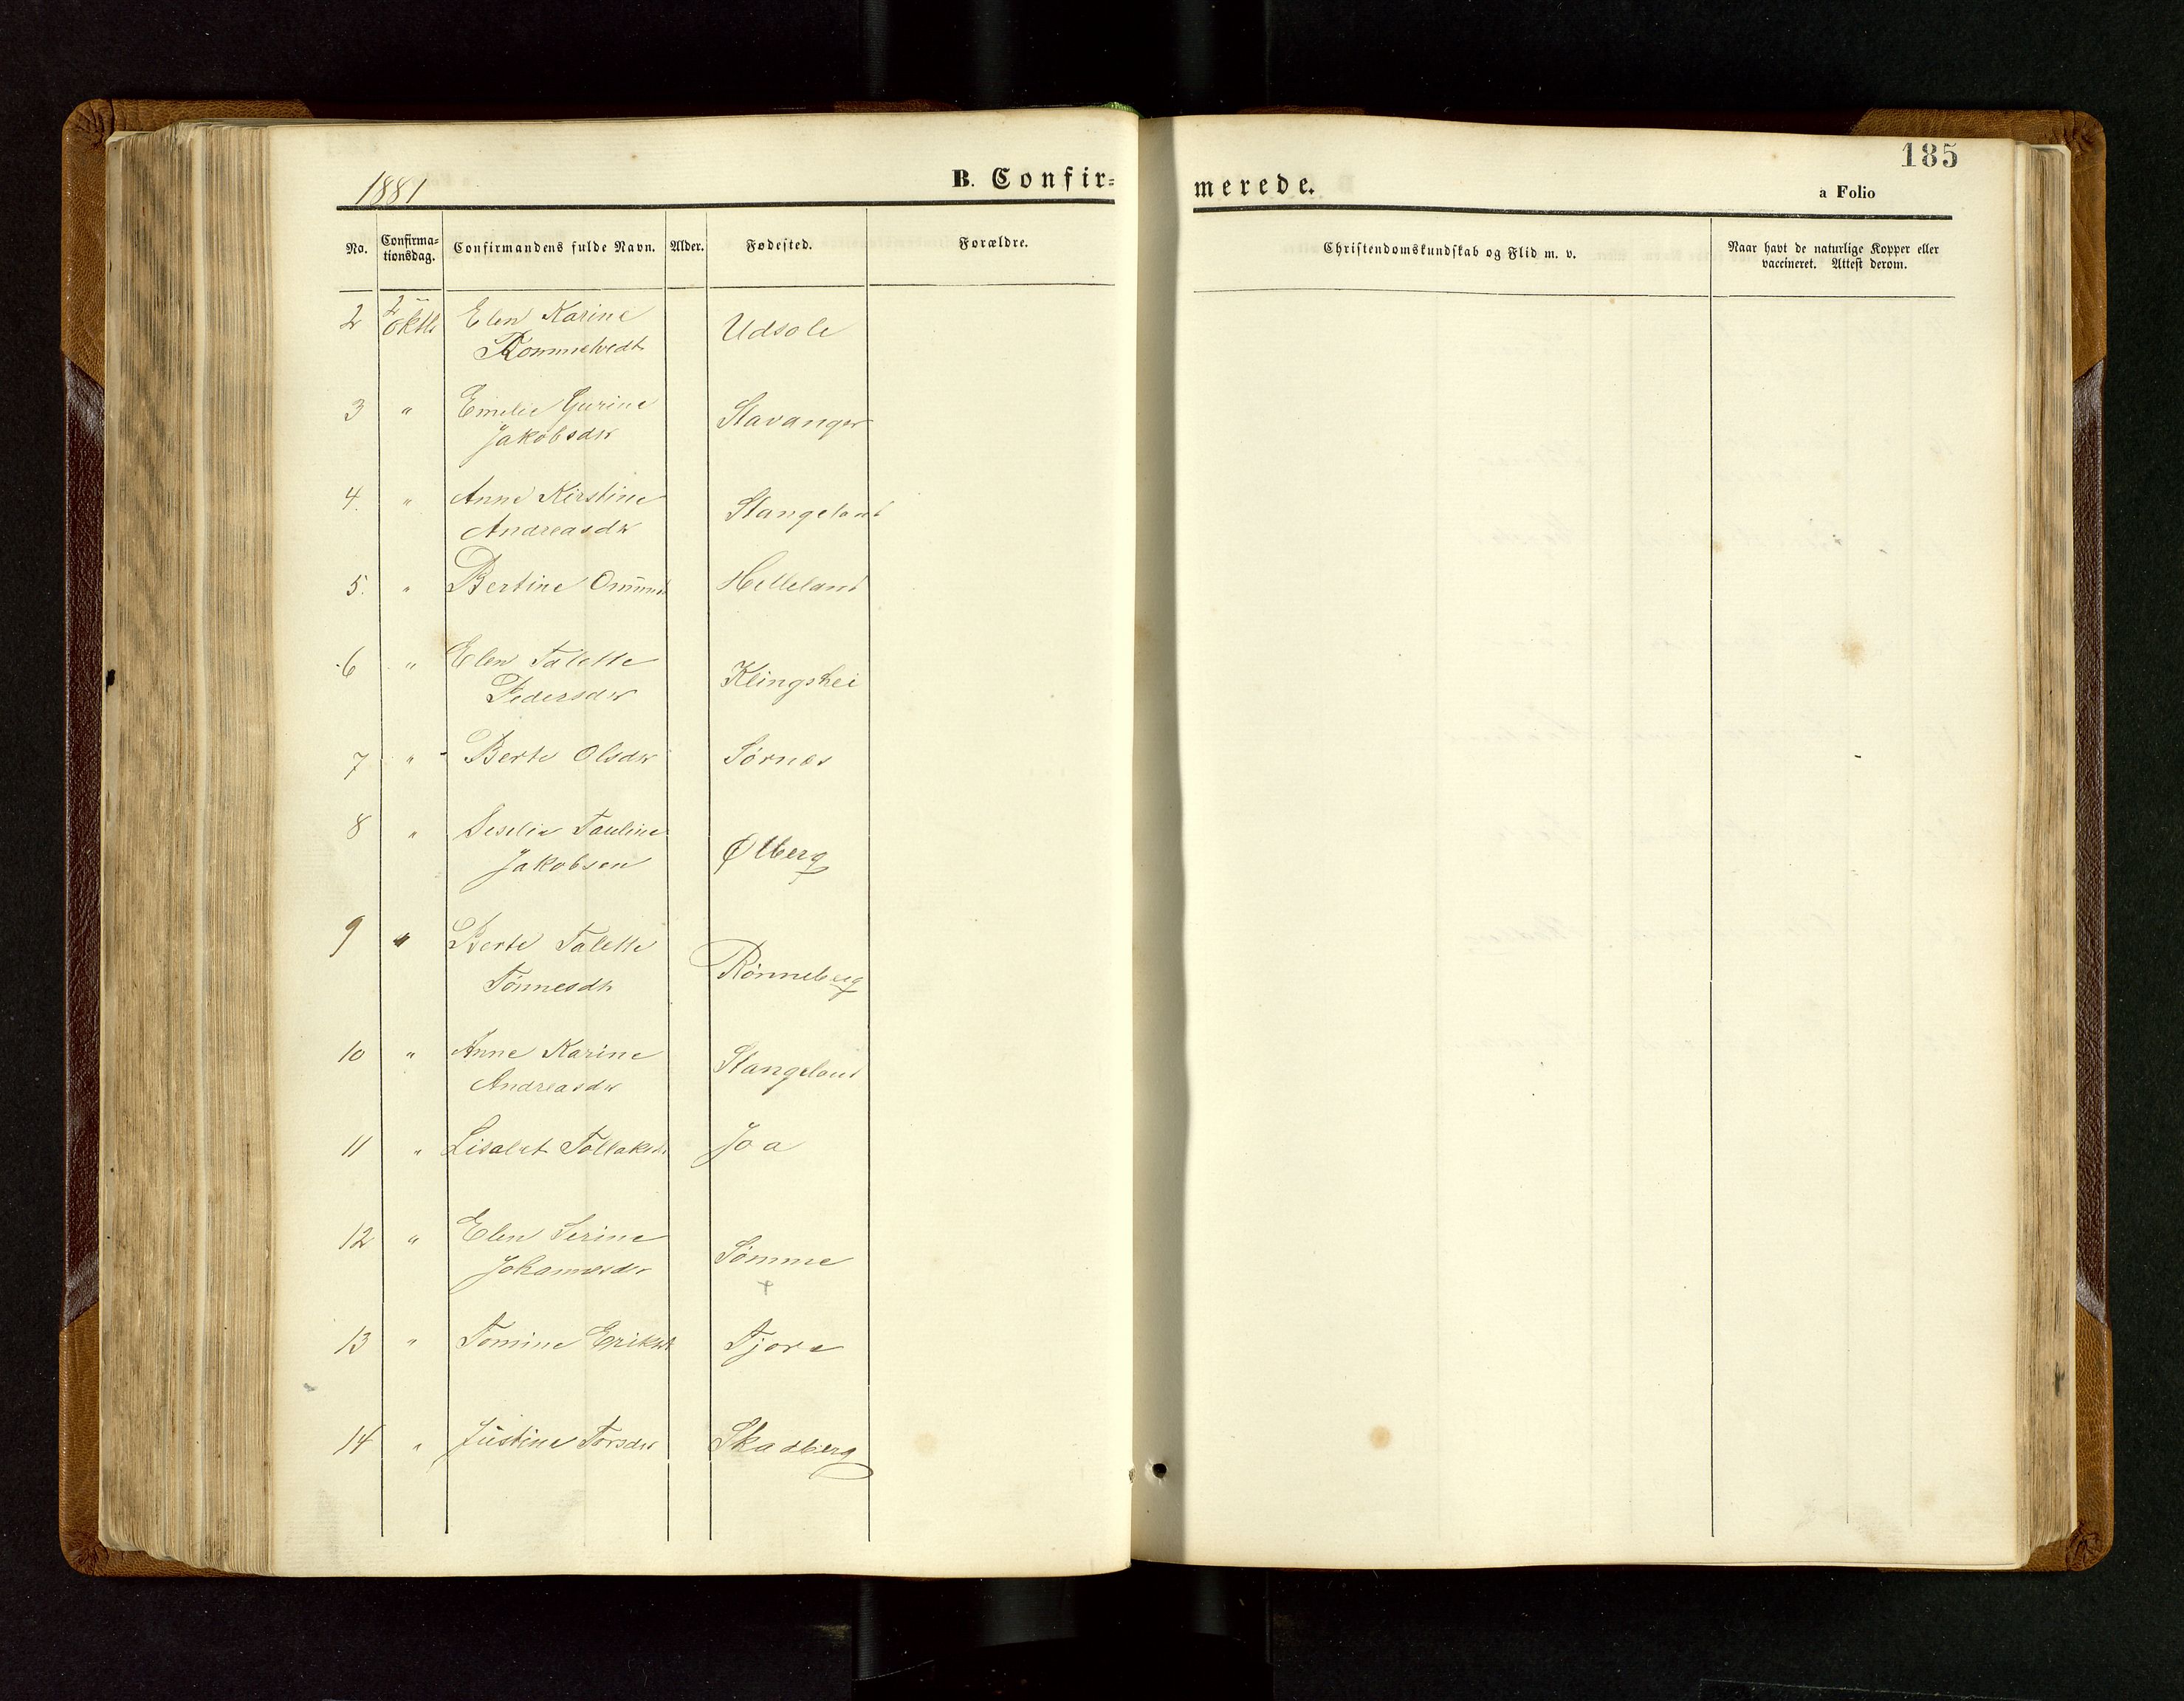 185
1881
B. Confir-
merede.
a Folio
No.
Confirma-
tionsdag.
Confirmandens fulde Navn.
Alder.
Fødested.
Forældre.
Christendomskundskab og Flid m. v.
Naar havt de naturlige Kopper eller
vaccineret. Attest derom.
2 2 Oktb Elen Karine
Rommetvedt
Udsole
3 " Emelie Gurine
Jakobsdtr
Stavanger
4. " Anne Kirstine
Andreasdtr
Stangeland
5. " Bertine Helleland
6 " Elen Talette
Pedersdtr
Klingshei
7 " Berte Olsdtr Sørnes
8 " Pauline
Jakobsen
Ølberg
9 " Berte Talette
Tønnesdtr
Rønneberg
10 " Anne Karine
Andreasdtr
Stangeland
11 " Lisabet Tollaksdtr Joa
12 " Elen Serine
Johannesdtr
Sømme
13 " Tomine Eriksdtr Tjora
14 " Justine Torsdtr Skadberg